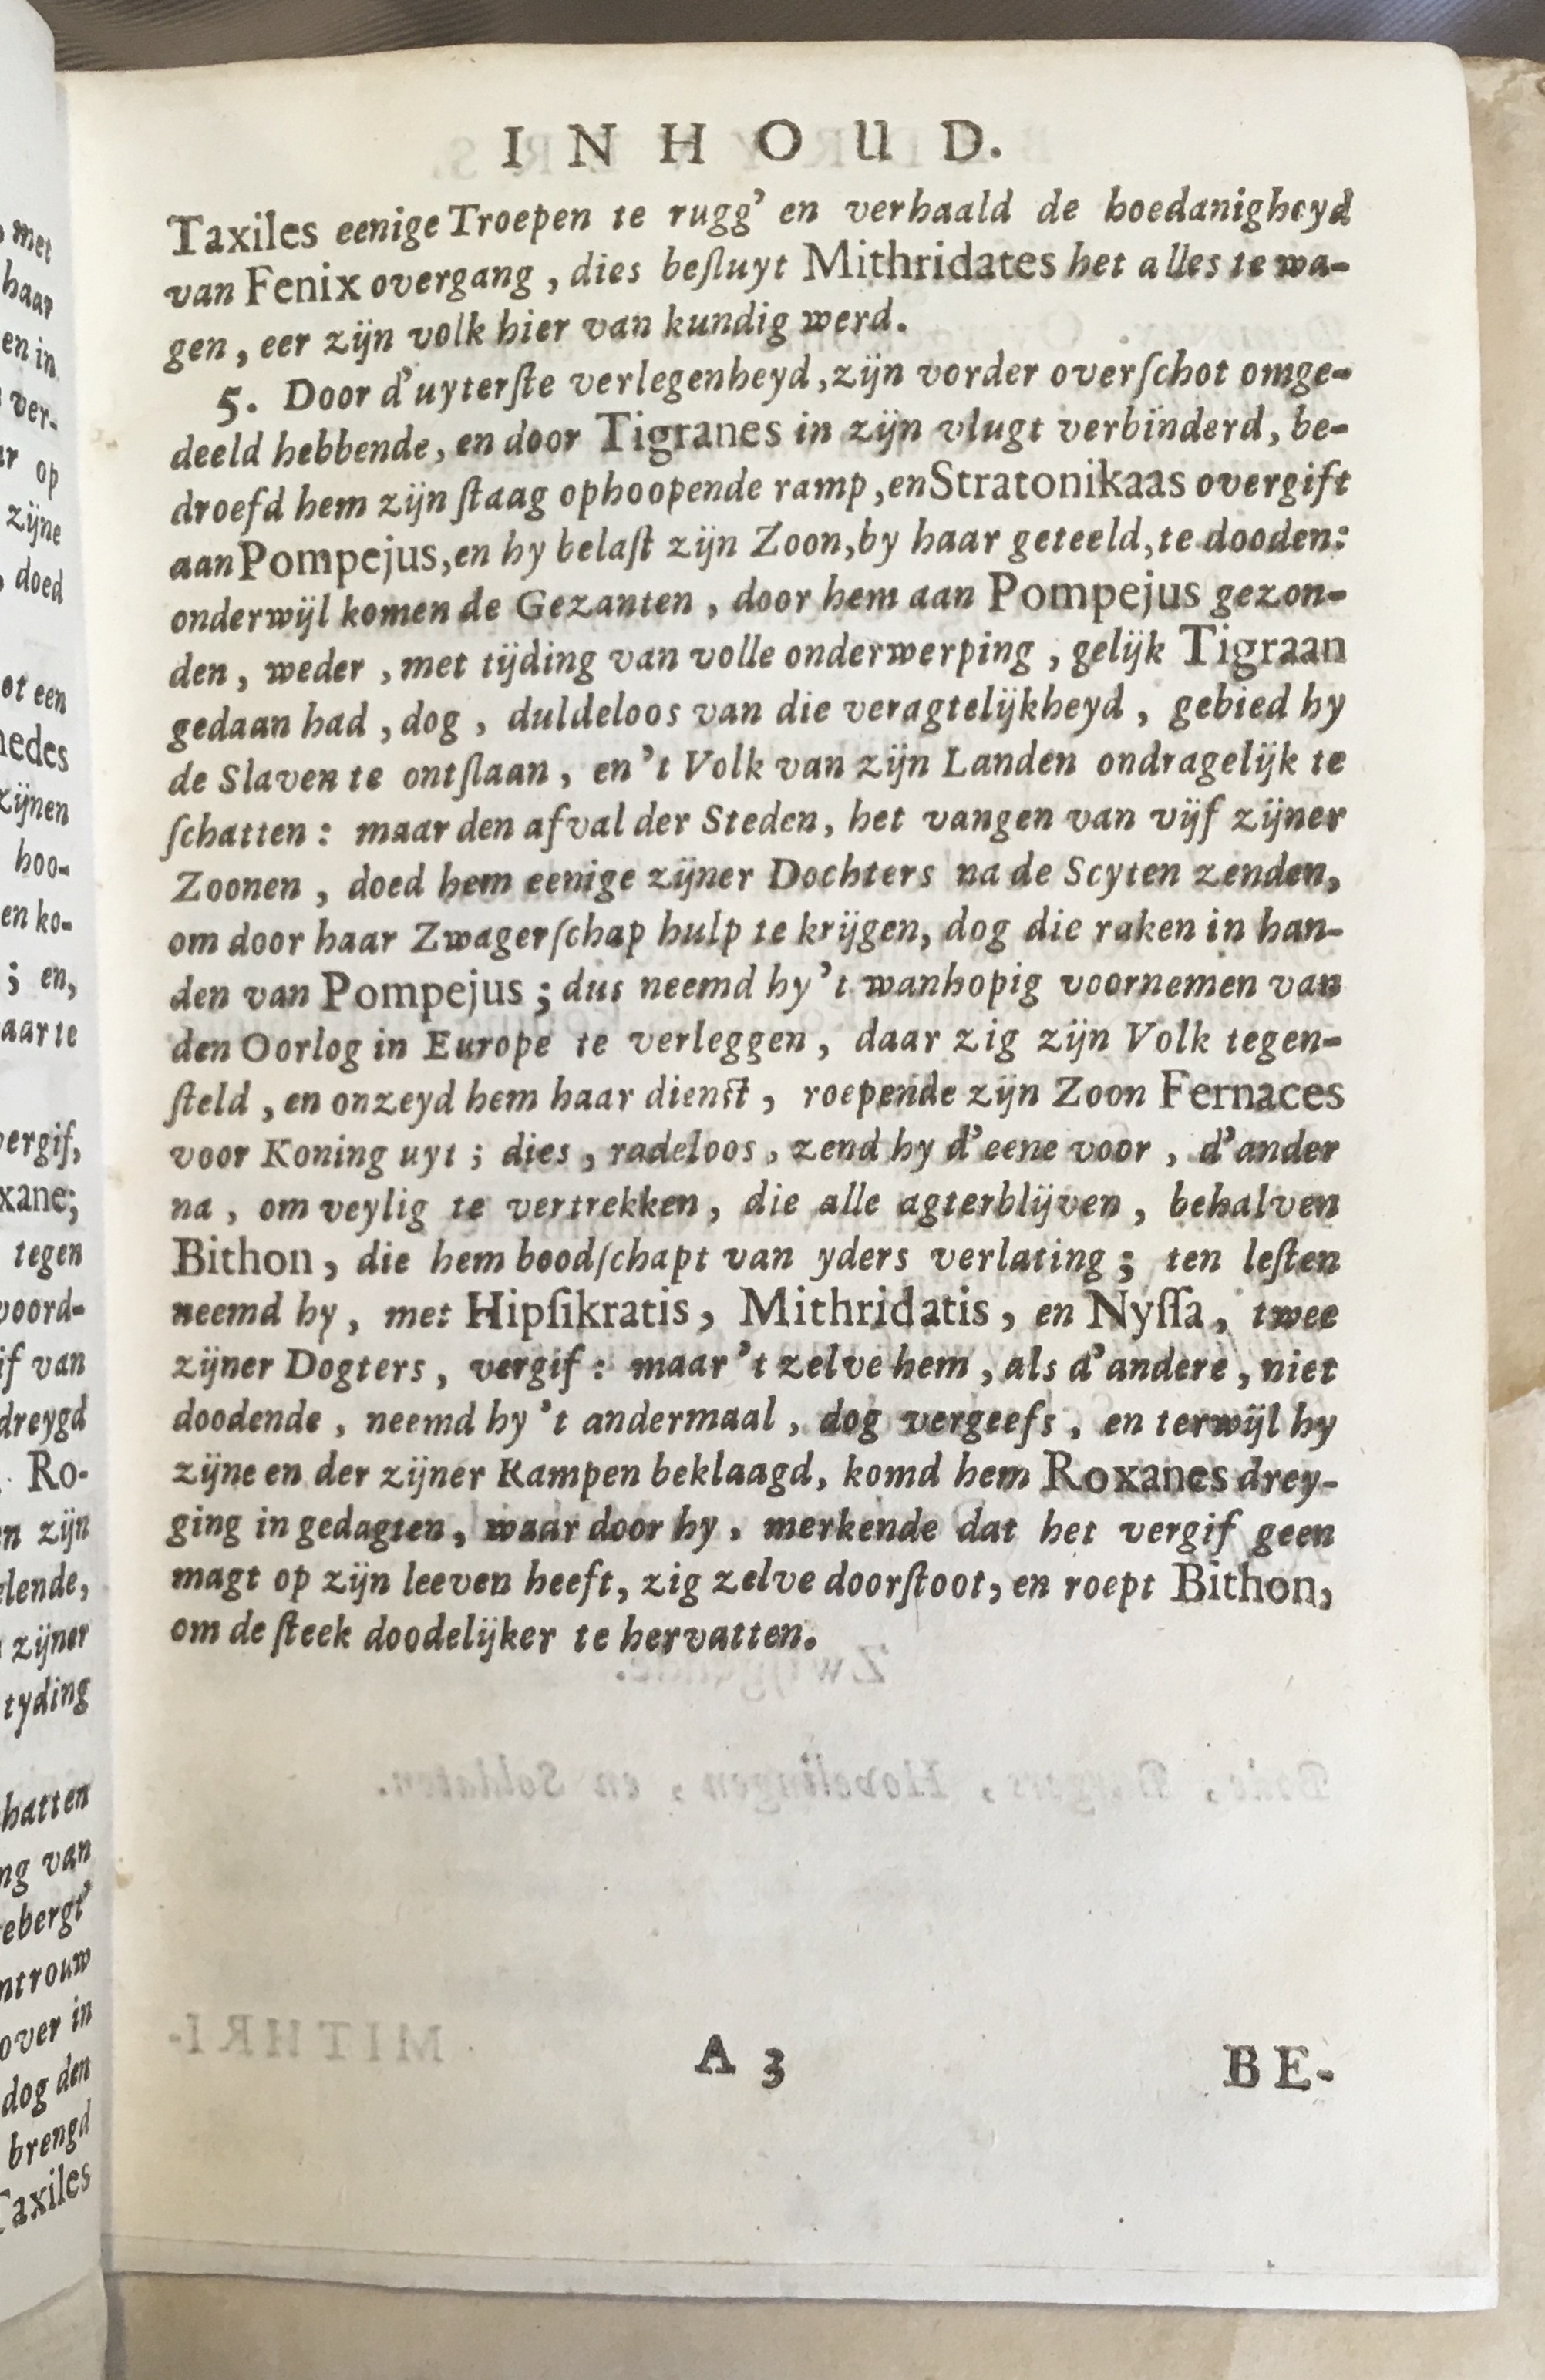 INHOUD.
Taxiles eenige Troepen te rugg' en verhaald de hoedanigheyd
van Fenix overgang, dies beſluyt Mithridates het alles te wa-
gen, eer zijn volk hier van kundig werd.
5. Door d'uyterſte verlegenheyd, zijn vorder overſchot omge-
deeld hebbende, en door Tigranes in zijn vlugt verhinderd, be-
droefd hem zijn ſtaag ophoopende ramp, en Stratonikaas overgift
aan Pompejus, en hy belaſt zijn Zoon, by haar geteeld, te dooden:
onderwijl komen de Gezanten, door hem aan Pompejus gezon-
den, weder, met tijding van volle onderwerping, gelijk Tigraan
gedaan had, dog, duldeloos van die veragtelijkheyd, gebied hy
de Slaven te ontſlaan, en 't Volk van zijn Landen ondragelijk te
ſchatten: maar den afval der Steden, het vangen van vijf zijner
Zoonen, doed hem eenige zijner Dochters na de Scyten zenden,
om door haar Zwagerſchap hulp te krijgen, dog die raken in han-
den van Pompejus; dus neemd hy 't wanhopig voornemen van
den Oorlog in Europe te verleggen, daar zig zijn Volk tegen-
ſteld, en onzeyd hem haar dienſt, roepende zijn Zoon Fernaces
voor Koning uyt; dies, radeloos, zend hy d'eene voor, d'ander
na, om veylig te vertrekken, die alle agterblijven, behalven
Bithon, die hem boodſchapt van yders verlating; ten leſten
neemd hy, met Hipſikratis, Mithridatis, en Nyſſa, twee
zijner Dogters, vergif: maar 't zelve hem, als d'andere, niet
doodende, neemd hy 't andermaal, dog vergeefs, en terwijl hy
zijne en der zijner Rampen beklaagd, komd hem Roxanes drey-
ging in gedagten, waar door hy, merkende dat het vergif geen
magt op zijn leeven heeft, zig zelve doorſtoot, en roept Bithon,
om de ſteek doodelijker te hervatten.
A 3
BE-